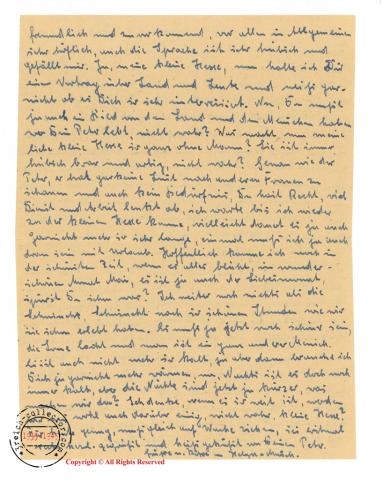 freundlich und zuvorkommend, vor allem im Allgemeinen
sehr höflich, auch die Sprache ist sehr hübsch und
gefällt mir. Ja, meine kleine Hexe, nun halte ich Dir
ein Vortrag über Land und Leute und weiß gar
nicht ob es Dich so sehr interessiert. Na, Du mußt
ja auch ein Bild von dem Land und den Menschen haben
wo Dein Peter lebt, nicht wahr? Was macht nun meine
liebe kleine Hexe so ganz ohne Mann? Sie ist immer
hübsch brav und artig, nicht wahr? Genau wie der
Peter, er hat gar keine Lust nach anderen Frauen zu
schauen und auch kein Bedürfnis, Du hast Recht, viel
Dienst und Arbeit lenkt ab, ich warte bis ich wieder
zu der kleinen Hexe komme, vielleicht dauert es ja auch
garnicht mehr so sehr lange, einmal muß ich ja auch
dran sein mit Urlaub. Hoffentlich komme ich noch in
der schönsten Zeit, wenn es alles blüht, im wunder-
schönen Monat Mai, es ist ja auch der Liebesmonat,
spürst Du ihn
Sehnsucht, Sehnsucht nach so schönen Stunden wie wir
sie schon erlebt haben. Es muß ja jetzt noch schöner sein,
die Sonne lacht und man ist ein ganz anderer Mensch.
ist auch nicht mehr so kalt, ja aber dann brauche ich
Dich ja garnicht mehr wärmen, na, Nachts ist es doch noch
kalt, aber die Nächte sind jetzt ja kürzer, was
wir da? Ich denke, wenn es so weit ist, werden
wir uns auch darüber einig, nicht wahr, kleine Hexe?
genug, muß gleich auf Wache ziehen, sei
gegrüßt und heiß geküßt von Deinem Peter.
reich-collector.com
1933-1945
Copyright © All Rights Reserved